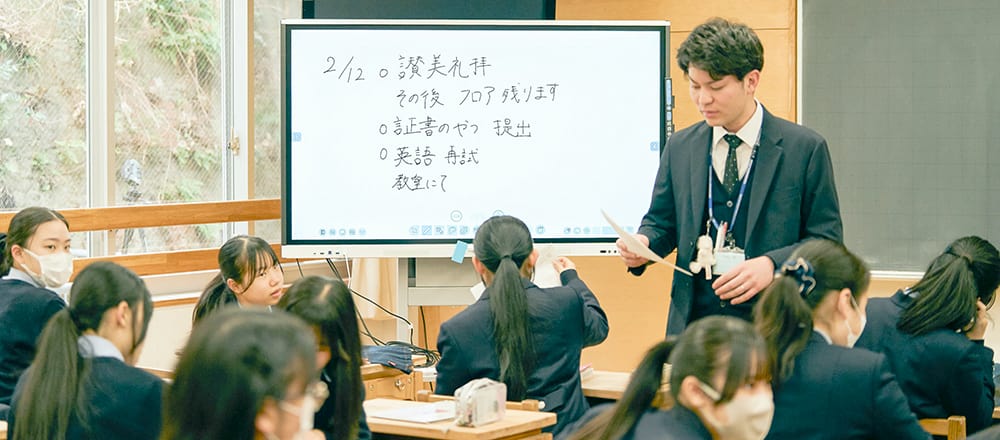 2/12 ○ 讃美礼拝
その後 フロア 残ります
○ 証書のやつ 提出
○ 英語 再試
教室にて